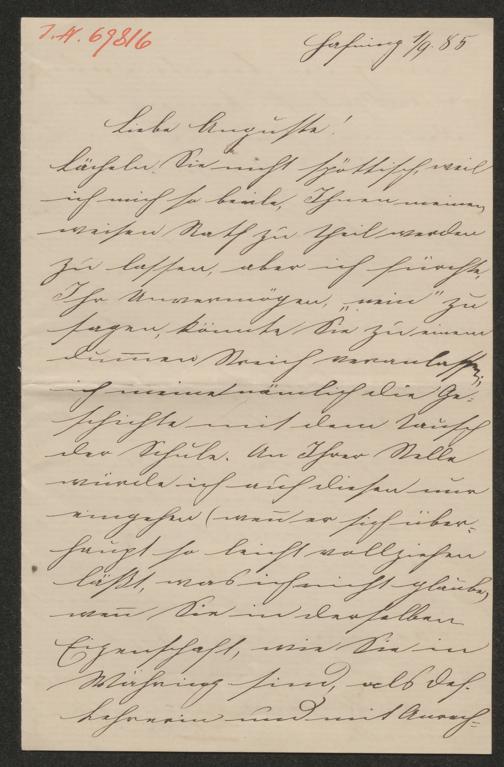 I. N. 69816
Hafning 1/9. 85
Liebe Auguste!
Lächeln Sie nicht spöttisch, weil
ich mich so beeile, Ihnen meinen
weisen Rath zu theil werden
zu lassen, aber ich fürchte,
Ihr Unvermögen, „nein" zu
sagen, könnte Sie zu einem
dum̅en Streich veranlassen;
ich meine nämlich die Ge-
schichte mit dem Tausch
der Schule. An Ihrer Stelle
würde ich auf diesen nur
eingehen (wen̅ er sich über-
haupt so leicht vollziehen
läßt, was ich nicht glaube,
wen̅ Sie in derselben
Eigenschaft, wie Sie in
Währing sind, als def.
Lehrerin und mit Anrech-